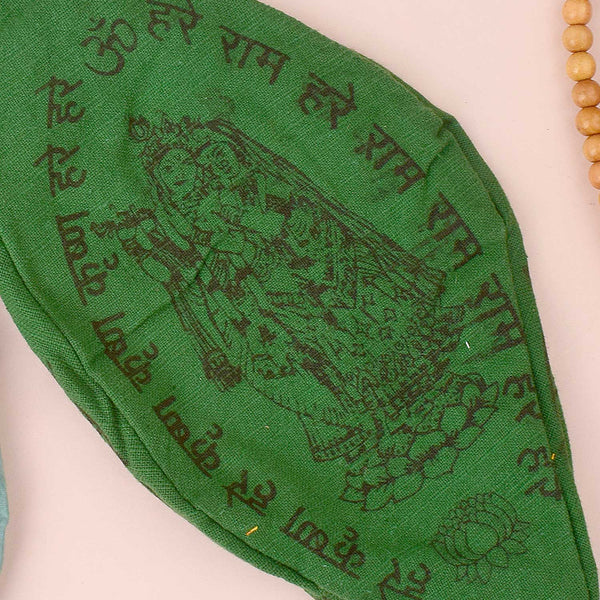 हरे कृष्ण हरे कृष्ण कृष्ण कृष्ण हरे हरे
ॐ हरे राम हरे राम राम राम हरे हरे